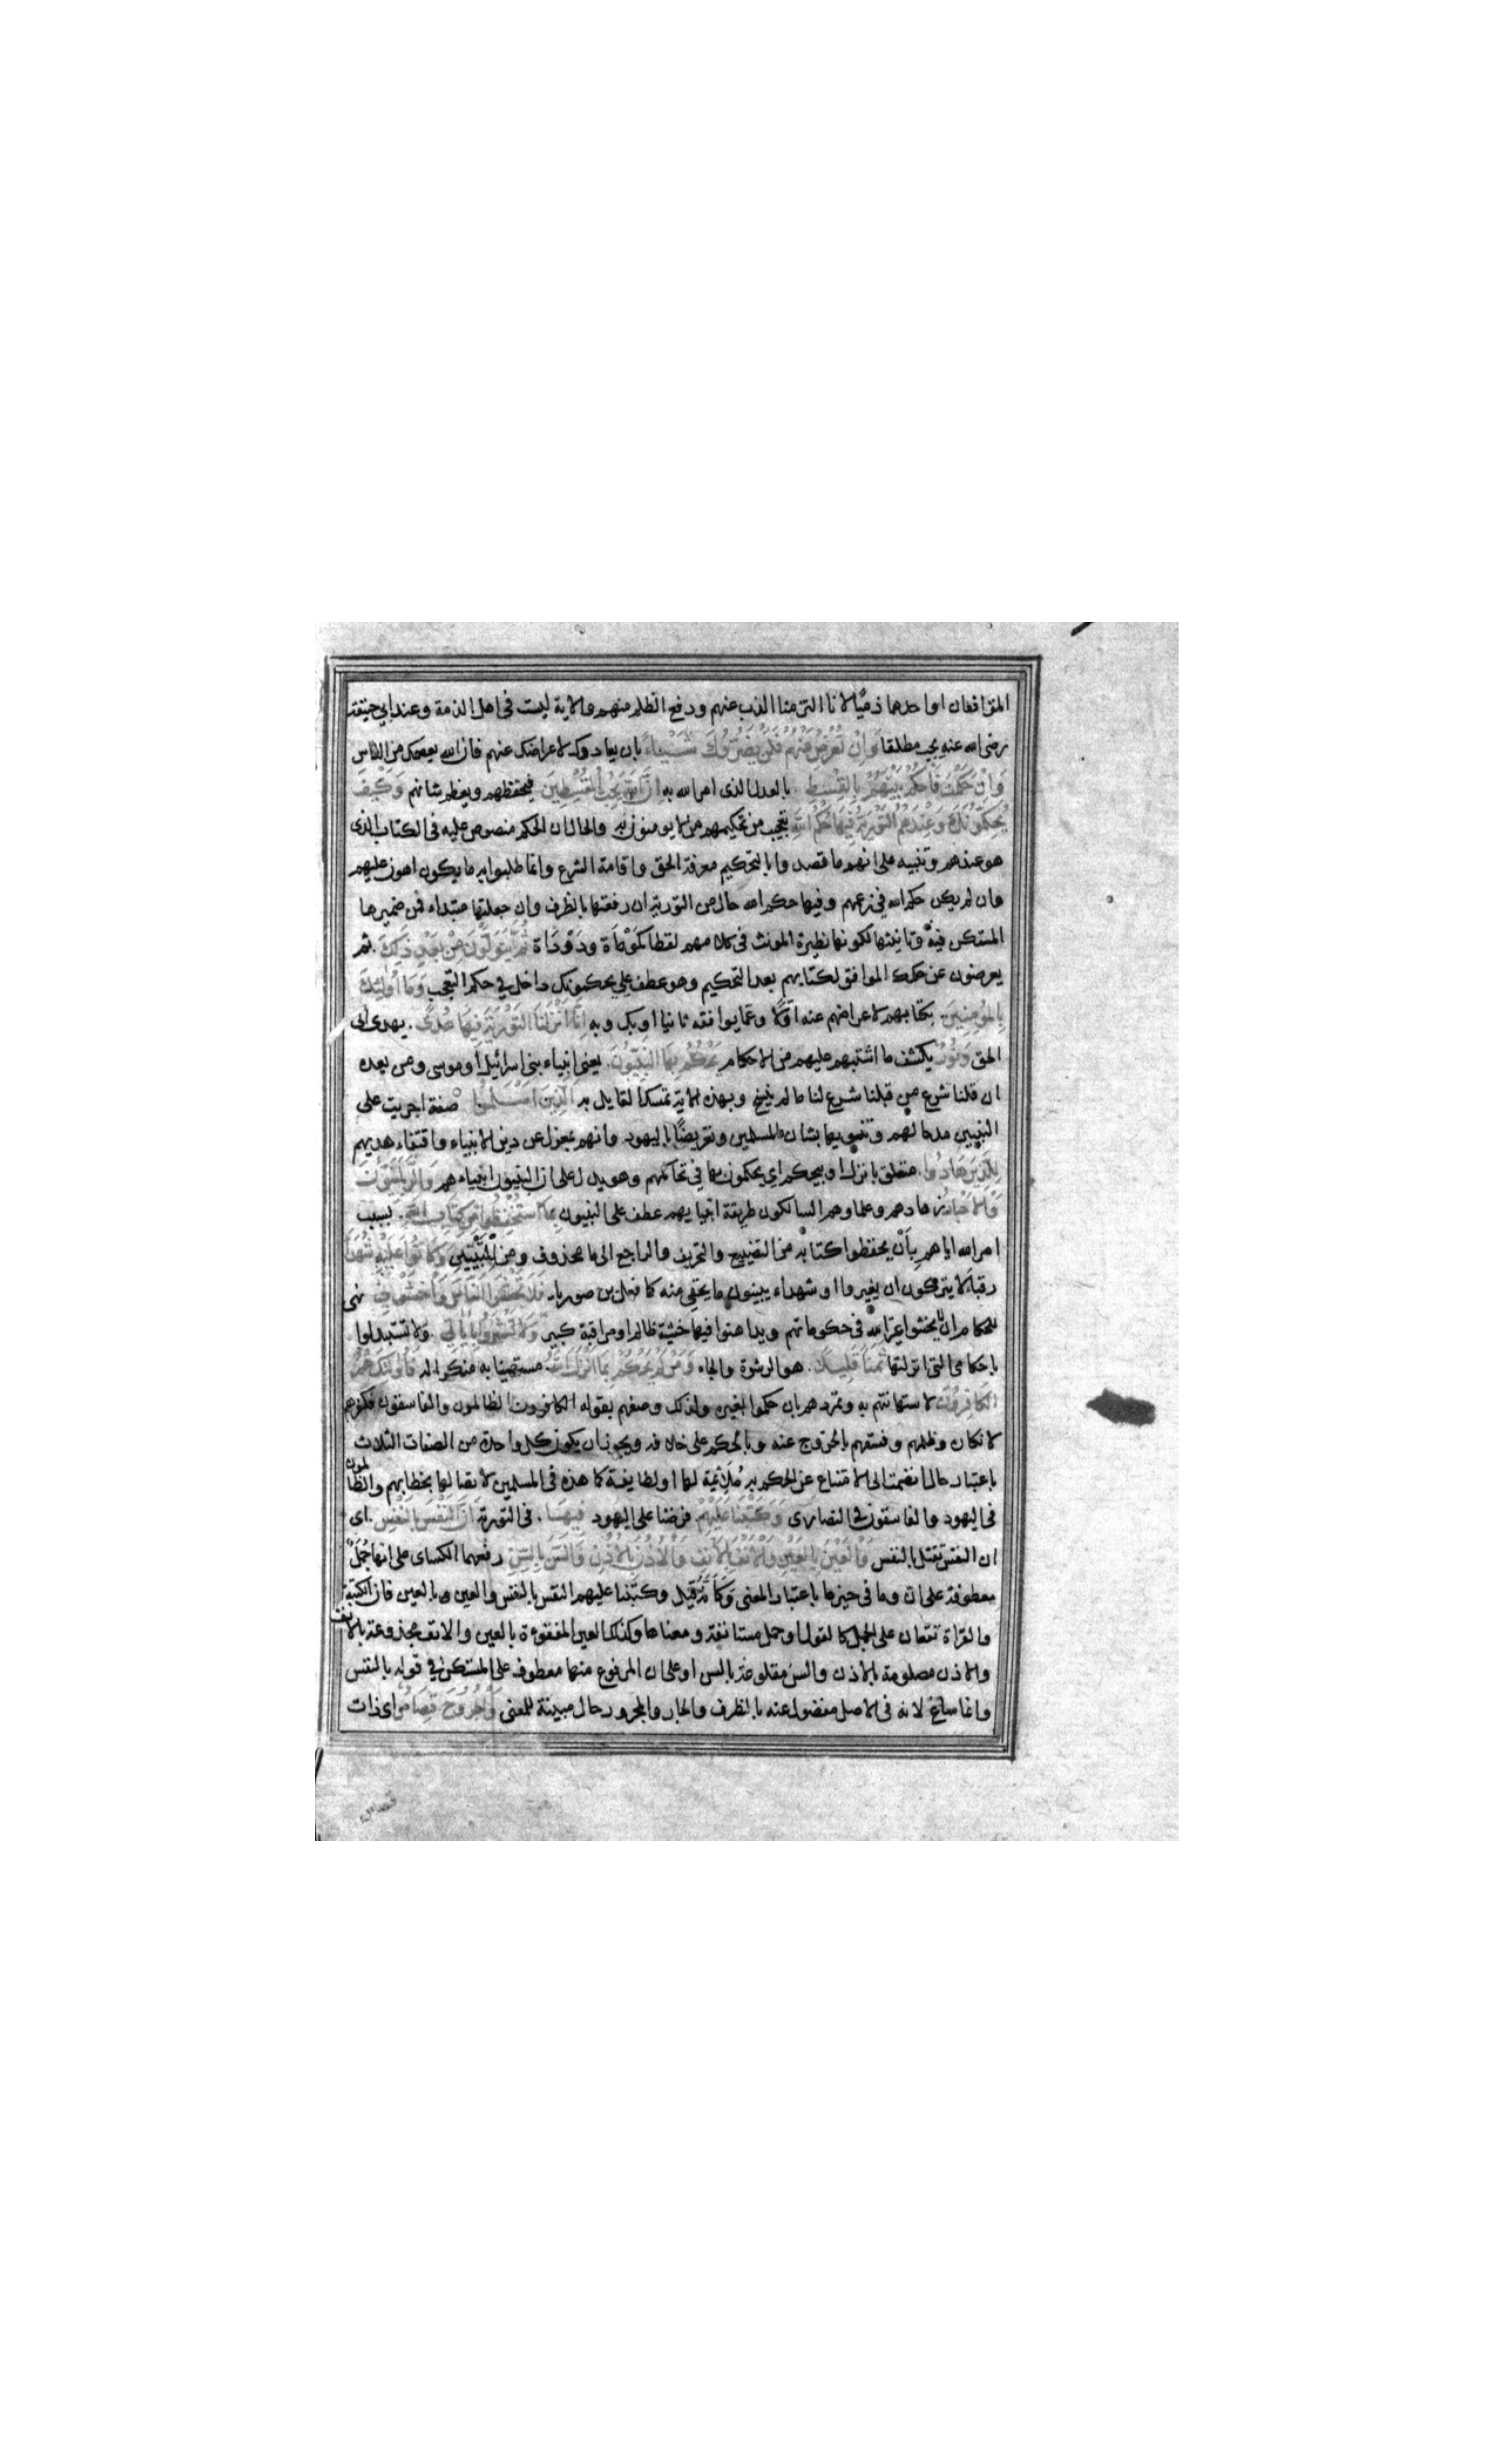 المترافعان او احدهما ذميا لانا التزمنا الذب عنهم ودفع الظلم منهم والاية ليست فى اهل الذمة وعند ابي حنيفة
رضى الله عنه يجب مطلقا وَاِنْ تُعْرِضْ عَنْهُمْ فَلَنْ يَضُرُّوكَ شَيْئاً بان يعادوك لاعراضك عنهم فان الله يعصمك من الناس
وَاِنْ حَكَمْتَ فَاحْكُمْ بَيْنَهُمْ بِالْقِسْطِ بالعدل الذى امر الله به اِنَّ اللهَ يُحِبُّ الْمُقْسِطِينَ فيحفظهم ويعظم شانهم وَكَيْفَ
يُحَكِّمُونَكَ وَعِنْدَهُمُ التَّوْرٰيةُ فِيهَا حُكْمُ اللهِ تعجيب من تحكيمهم من لا يومنون به والحال ان الحكم منصوص عليه فى الكتاب الذى
هو عندهم وتنبيه على انهم ما قصدوا بالتحكيم معرفة الحق واقامة الشرع وانما طلبوا به ما يكون اهون عليهم
وان لم يكن حكم الله في زعمهم وفيها حكم الله حال من التورية ان رفعتها بالظرف وان جعلتها مبتداء فمن ضميرها
المستكن فيه وتانيثها لكونها نظيرة المونث فى كلامهم لفظا كموماة ودوداة ثُمَّ يَتَوَلَّوْنَ مِنْ بَعْدِ ذٰلِكَ ثم
يعرضون عن حكمك الموافق لكتابهم بعد التحكيم وهو عطف على يحكمونك داخل في حكم التعجيب وَمَا اُولٰئِكَ
بِالْمُؤْمِنِينَ بكتابهم لاعراضهم عنه اولا وعما يوافقه ثانيا او بك وبه اِنَّا اَنْزَلْنَا التَّوْرٰيةَ فِيهَا هُدًى يهدى الى
الحق وَنُورٌ يكشف ما اشتبه عليهم من الاحكام يَحْكُمُ بِهَا النَّبِيُّونَ يعنى انبياء بنى اسرائيل او موسى ومن بعده
ان قلنا شرع من قبلنا شرع لنا ما لم ينسخ وبهذه الاية تمسك القايل به اَلَّذِينَ اَسْلَمُوا صفة اجريت على
النبيين مدحا لهم وتنويها بشان المسلمين وتعريضا باليهود وانهم بمعزل عن دين الانبياء واقتفاء هديهم
لِلَّذِينَ هَادُوا متعلق بانزل او بيحكم اي يحكمون بها في تحاكمهم وهو يدل على ان النبيون انبياءهم وَالرَّبَّانِيُّونَ
وَالْاَحْبَارُ زهادهم وعلماوهم السالكون طريقة انبيايهم عطف على النبيون بِمَا اسْتُحْفِظُوا مِنْ كِتَابِ اللهِ بسبب
امر الله اياهم بِاَنْ يحفظوا كتابه من التضييع والتحريف والراجع الى ما محذوف ومن للتبيين وَكَانُوا عَلَيْهِ شُهَدَاءَ
رقباء لا يتركون ان يغيروا او شهداء يبينون ما يخفى منه كما فعل بن صوريا فَلَا تَخْشَوُا النَّاسَ وَاخْشَوْنِ نهى
للحكام ان يخشوا غير الله فى حكوماتهم ويداهنوا فيها خشية ظالم او مراقبة كبير وَلَا تَشْتَرُوا بِاٰيَاتِي ولا تستبدلوا
باحكامى التى انزلتها ثَمَناً قَلِيلاً هو الرشوة والجاه وَمَنْ لَمْ يَحْكُمْ بِمَا اَنْزَلَ اللهُ مستهينا به منكرا له فَاُولٰئِكَ هُمُ
الْكَافِرُونَ لاستهانتهم به وتمردهم بان حكموا بغيره ولذلك وصفهم بقوله الكافرون الظالمون والفاسقون فكفرهم
لانكاره وظلمهم وفسقهم بالخروج عنه وبالحكم على خلافه ويجوز ان يكون كل واحدة من الصفات الثلاث
باعتبار حال انضمت الى الامتناع عن الحكم به مُلائمة لها او لطايفة كما هذه فى المسلمين لاتصالها بخطابهم والظالمون
فى اليهود والفاسقون فى النصارى وَكَتَبْنَا عَلَيْهِمْ فرضنا على اليهود فِيهَا فى التورية اَنَّ النَّفْسَ بِالنَّفْسِ اى
ان النفس تقتل بالنفس وَالْعَيْنَ بِالْعَيْنِ وَالْاَنْفَ بِالْاَنْفِ وَالْاُذُنَ بِالْاُذُنِ وَالسِّنَّ بِالسِّنِّ رفعها الكساى على انها جُمَلٌ
معطوفة على ان وما فى حيزها باعتبار المعنى وَكَاَنَّهُ قيل وكتبنا عليهم النفس بالنفس والعين بالعين فان الكتبة
والقراة تقعان على الجمل كالقول او جمل مستانفة ومعناها وكذلك العين المفقوءة بالعين والانف مجذوعة بالانف
والاذن مصلومة بالاذن والسن مقلوعة بالسن او على ان المرفوع منها معطوف على المستكن في قوله بالنفس
وانما ساغ لانه فى الاصل مفصول عنه بالظرف والجار والمجرور حال مبينة للمعنى وَالْجُرُوحَ قِصَاصٌ اى ذات
قصاص